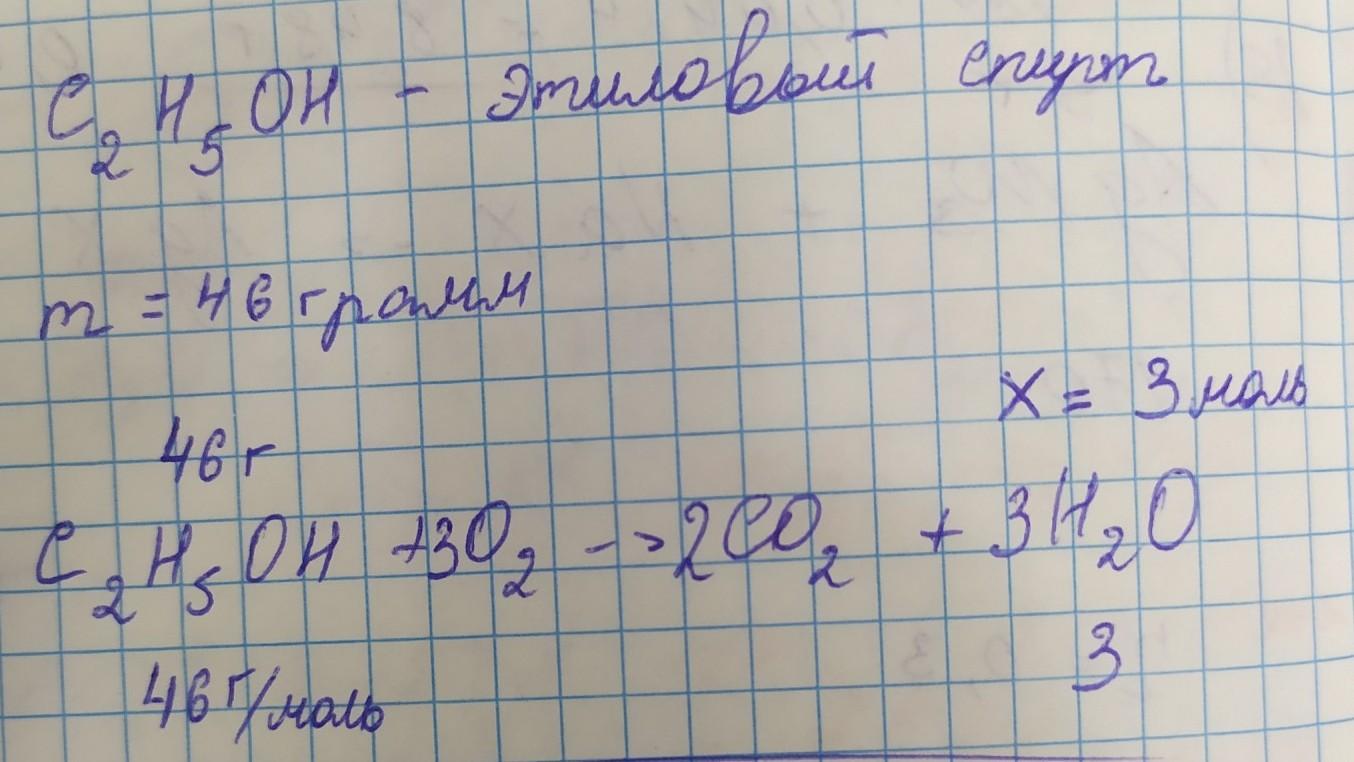 C₂H₅OH - этиловый спирт
m = 46 грамм
x = 3 моль
46 г
C₂H₅OH +3O₂ -> 2CO₂ + 3H₂O
46 г/моль 3